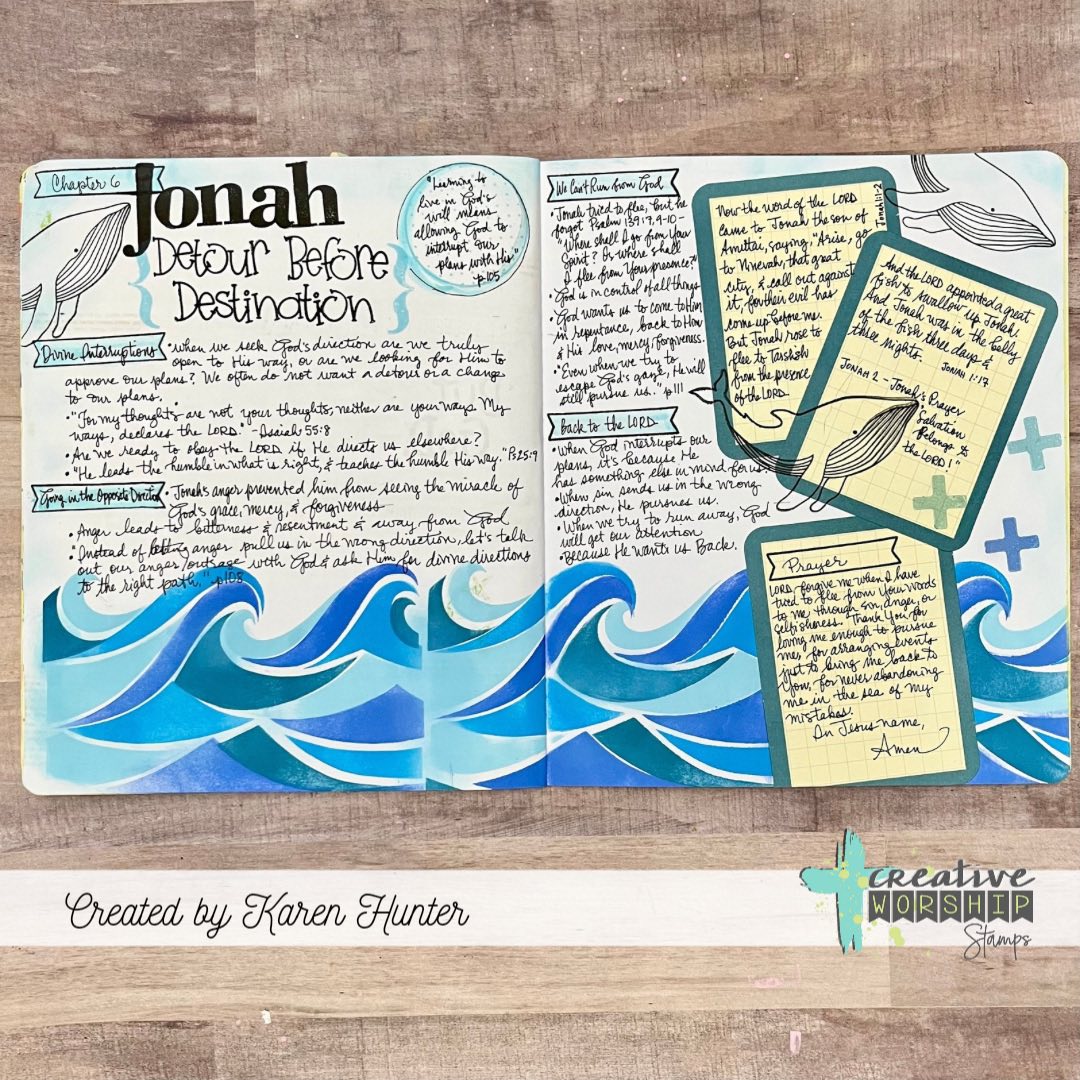 Chapter 6
Jonah
Detour Before
Destination
"Learning to
live in God's
will means
allowing God to
interrupt our
plans with His"
p105
Divine Interruptions
• When we seek God's direction are we truly
open to His way, or are we looking for Him to
approve our plans? We often do not want a detour or a change
to our plans.
• "For my thoughts are not your thoughts, neither are your ways My
ways, declares the LORD." -Isaiah 55:8
• Are we ready to obey the LORD if He directs us elsewhere?
• "He leads the humble in what is right, & teaches the humble His way." Ps 25:9
Going in the Opposite Direction
• Jonah's anger prevented him from seeing the miracle of
God's grace, mercy, & forgiveness
• Anger leads to bitterness & resentment & away from God
• Instead of letting anger pull us in the wrong direction, let's talk
out our anger/outrage with God & ask Him for divine directions
to the right path." p108
We Can't Run from God
• Jonah tried to flee, but he
forgot Psalm 139:7, 9-10-
"Where shall I go from Your
Spirit? Or where shall
I flee from Your presence?"
• God is in control of all things
• God wants us to come to Him
in repentance, back to Him
& His love, mercy, forgiveness.
• "Even when we try to
escape God's gaze, He will
still pursue us." p111
Back to the LORD
• When God interrupts our
plans, it's because He
has something else in mind for us.
• When sin sends us in the wrong
direction, He pursues us.
• When we try to run away, God
will get our attention
• Because He wants us Back.
Now the word of the LORD
came to Jonah the son of
Amittai, saying, "Arise, go
to Ninevah, that great
city, & call out against
it, for their evil has
come up before me.
But Jonah rose to
flee to Tarshish
from the presence
of the LORD.
Jonah 1:1-2
And the LORD appointed a great
fish to swallow up Jonah.
And Jonah was in the belly
of the fish three days &
three nights.
JONAH 1:17
JONAH 2 - Jonah's Prayer
"Salvation
Belongs to
the LORD!"
Prayer
LORD, forgive me when I have
tried to flee from Your words
to me through sin, anger, or
selfishness. Thank You for
loving me enough to pursue
me, for arranging events
just to bring me back to
You, for never abandoning
me in the sea of my
mistakes.
In Jesus name,
Amen
Created by Karen Hunter
creative
WORSHIP
Stamps